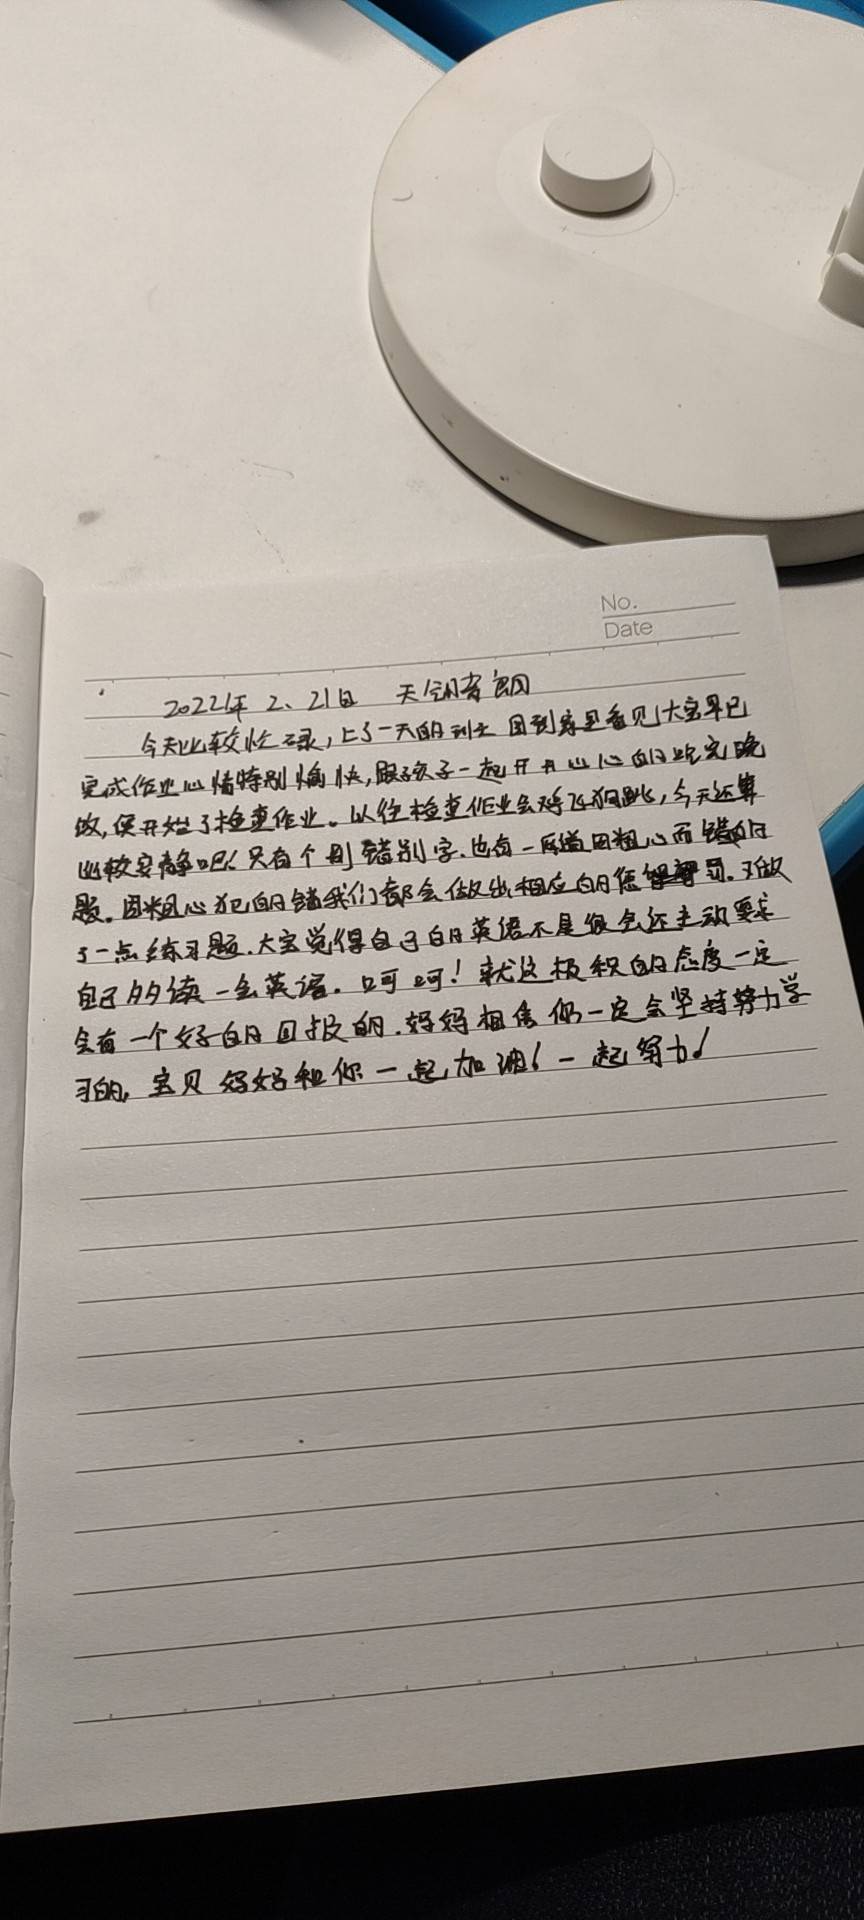 No.
Date
2022年 2、21日 天气晴朗
今天比较忙碌，上了一天的班 回到家里看见大宝早已
完成作业心情特别愉快，跟孩子一起开开心心的吃完晚
饭，便开始了检查作业。以往检查作业会鸡飞狗跳，今天还算
比较安静吧！只有个别错别字.也有一两道因粗心而错的
题。因粗心犯的错我们都会做出相应的惩罚。又做
了一点练习题.大宝觉得自己的英语不是很会还主动要求
自己多读一会英语。呵呵！就这极积的态度一定
会有一个好的回报的.妈妈相信你一定会坚持努力学
习的，宝贝妈妈和你一起加油！一起努力！